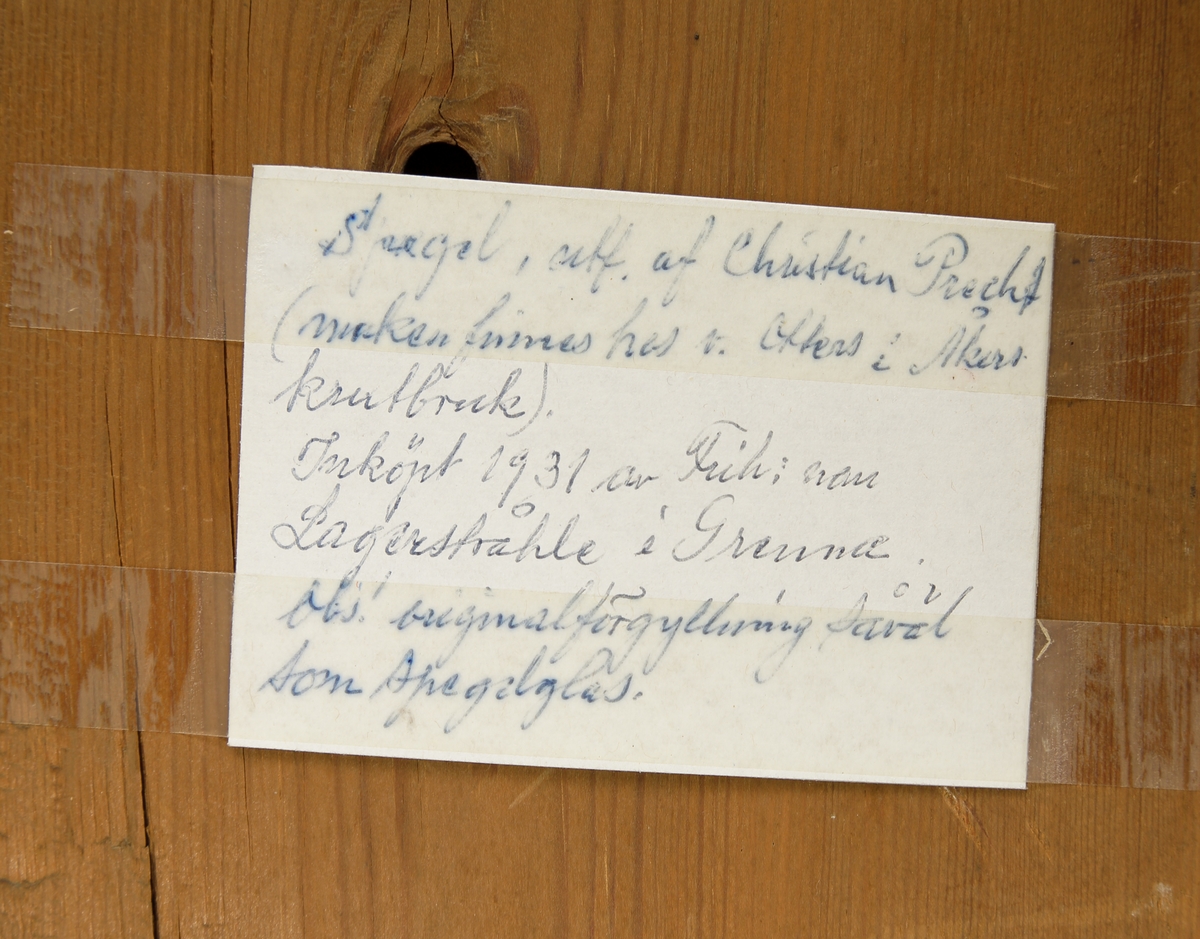 Spegel, utf. af Christian Precht
(maken finnes hos v. Otters i Åkers
krutbruk).
Inköpt 1931 av Frih: nan
Lagerstråhle i Grenna.
Obs! originalförgyllning såväl
som spegelglas.